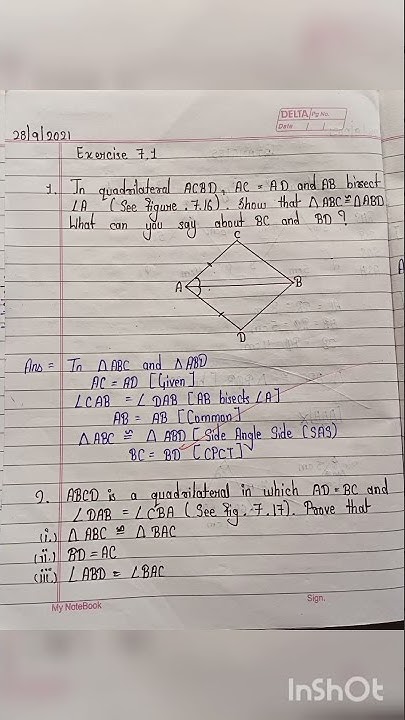 DELTA Pg No.
Date
28/9/2021
Exercise 7.1
1. In quadrilateral ACBD, AC = AD and AB bisect
∠A (See figure. 7.16). Show that △ABC ≅ △ABD
What can you say about BC and BD?
C
A
B
D
Ans = In △ABC and △ABD
AC = AD [Given]
∠CAB = ∠DAB [AB bisects ∠A]
AB = AB [Common]
△ABC ≅ △ABD [Side Angle Side (SAS)
BC = BD [CPCT]
2. ABCD is a quadrilateral in which AD = BC and
∠DAB = ∠CBA (See fig. 7.17). Prove that
(i.) △ABC ≅ △BAC
(ii.) BD = AC
(iii.) ∠ABD = ∠BAC
My NoteBook
Sign.
InShOt